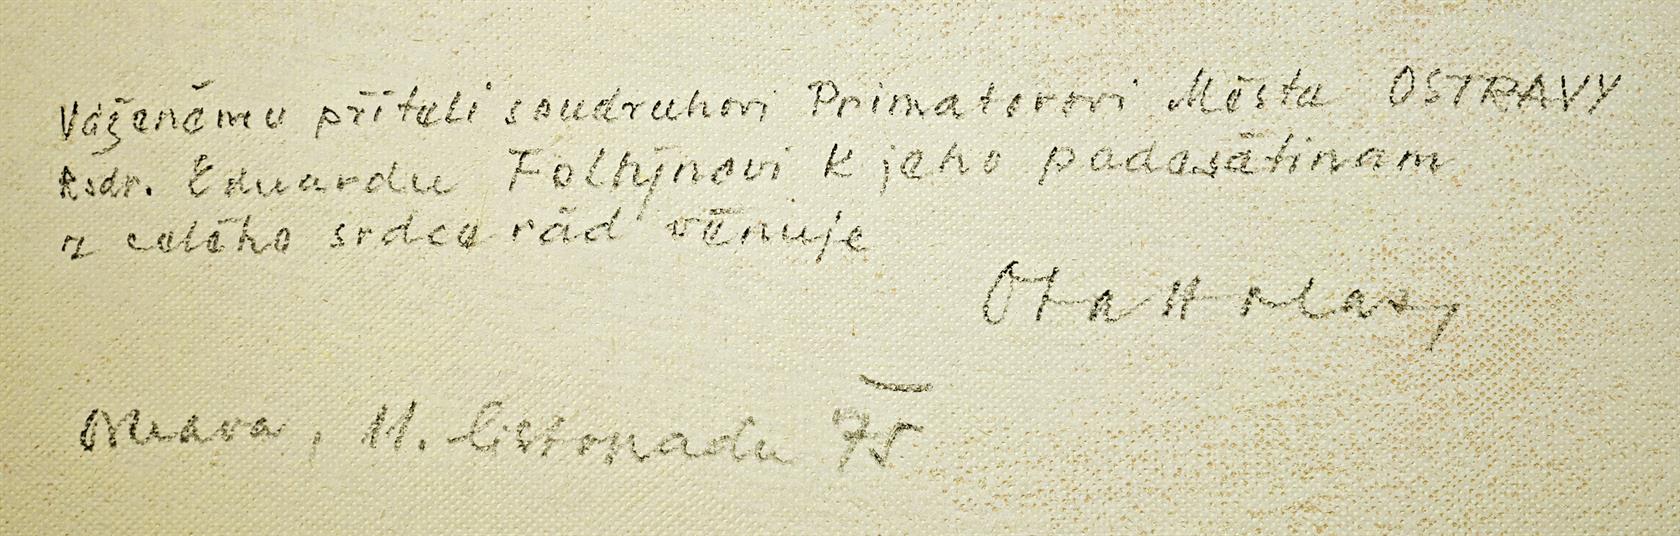 Váženému příteli soudruhovi Primatorovi Města OSTRAVY
Rsdr. Eduardu Foltýnovi k jeho padesátinam
z celého srdce rád věnuje
Ota Holas
Ostrava, 11. listopadu 75